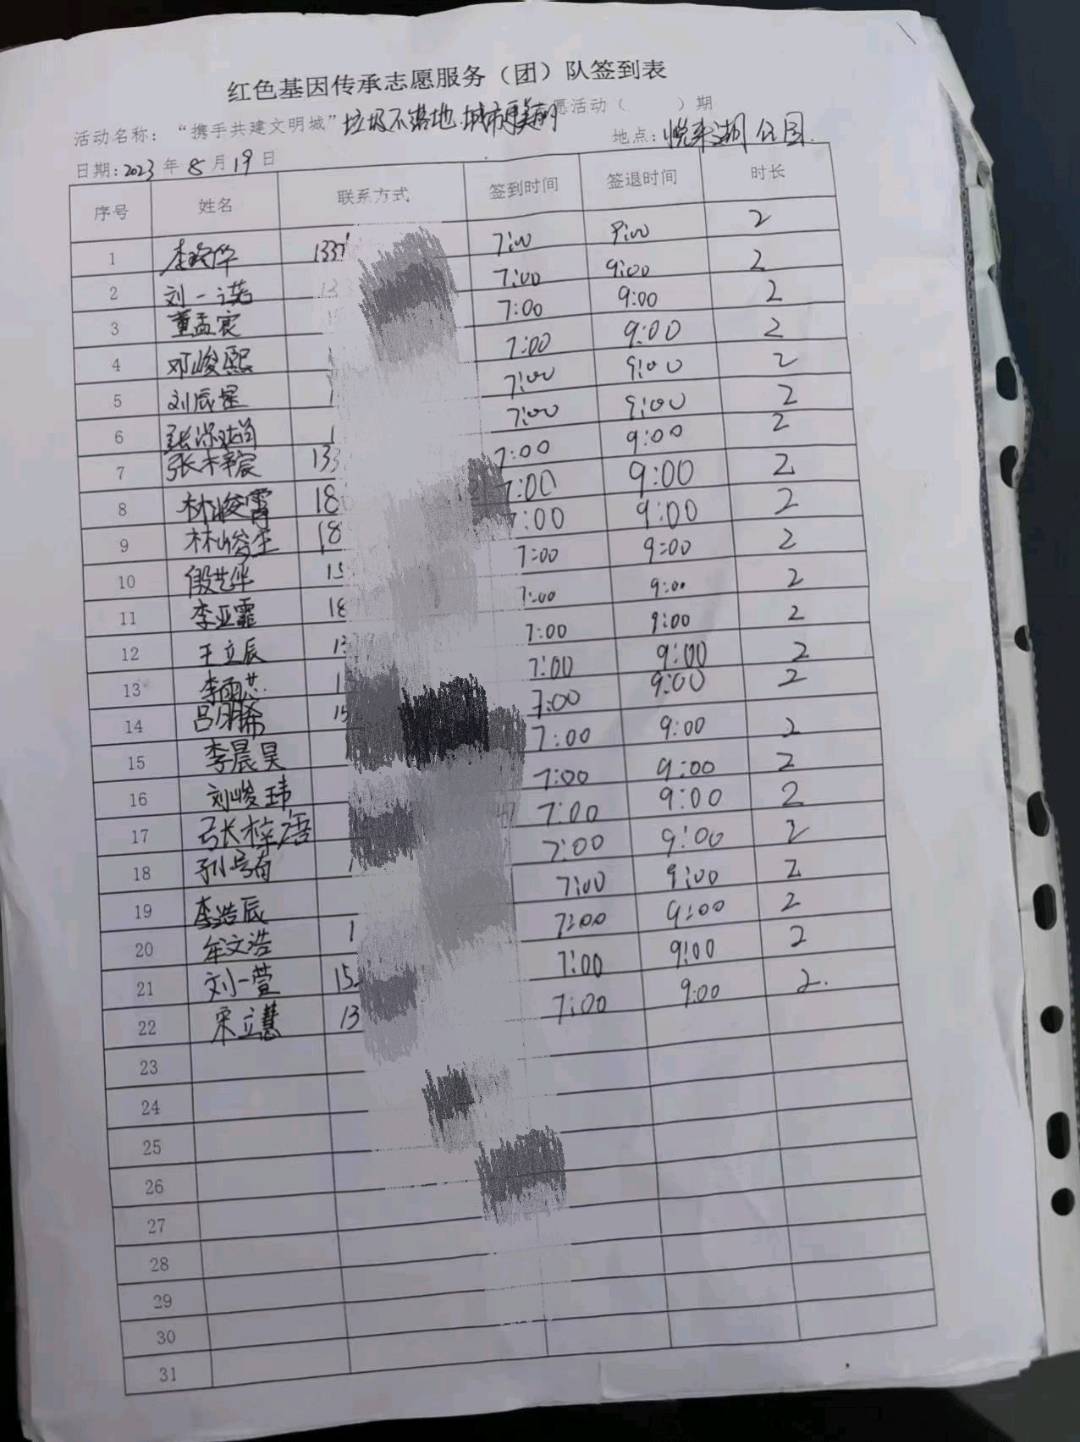 红色基因传承志愿服务（团）队签到表
活动名称：“携手共建文明城”垃圾不落地 城市更美丽 愿活动（ ）期
日期：2023年8月19日 地点：悦来湖公园
序号 姓名 联系方式 签到时间 签退时间 时长
1 1337 7:00 9:00 2
2 刘一诺 13 7:00 9:00 2
3 董孟宸 7:00 9:00 2
4 邓峻熙 7:00 9:00 2
5 刘辰星 1 7:00 9:00 2
6 张 1 7:00 9:00 2
7 张梓宸 133 7:00 9:00 2
8 林峻霄 18 7:00 9:00 2
9 林 18 7:00 9:00 2
10 殷艺华 15 7:00 9:00 2
11 李亚霏 18 7:00 9:00 2
12 王立辰 13 7:00 9:00 2
13 李雨芯 1 7:00 9:00 2
14 吕 15 7:00 9:00 2
15 李晨昊 7:00 9:00 2
16 刘峻玮 7:00 9:00 2
17 张梓语 7:00 9:00 2
18 7:00 9:00 2
19 李浩辰 7:00 9:00 2
20 牟文浩 1 7:00 9:00 2
21 刘一萱 15 7:00 9:00 2
22 宋立慧 13 7:00 9:00 2.
23
24
25
26
27
28
29
30
31